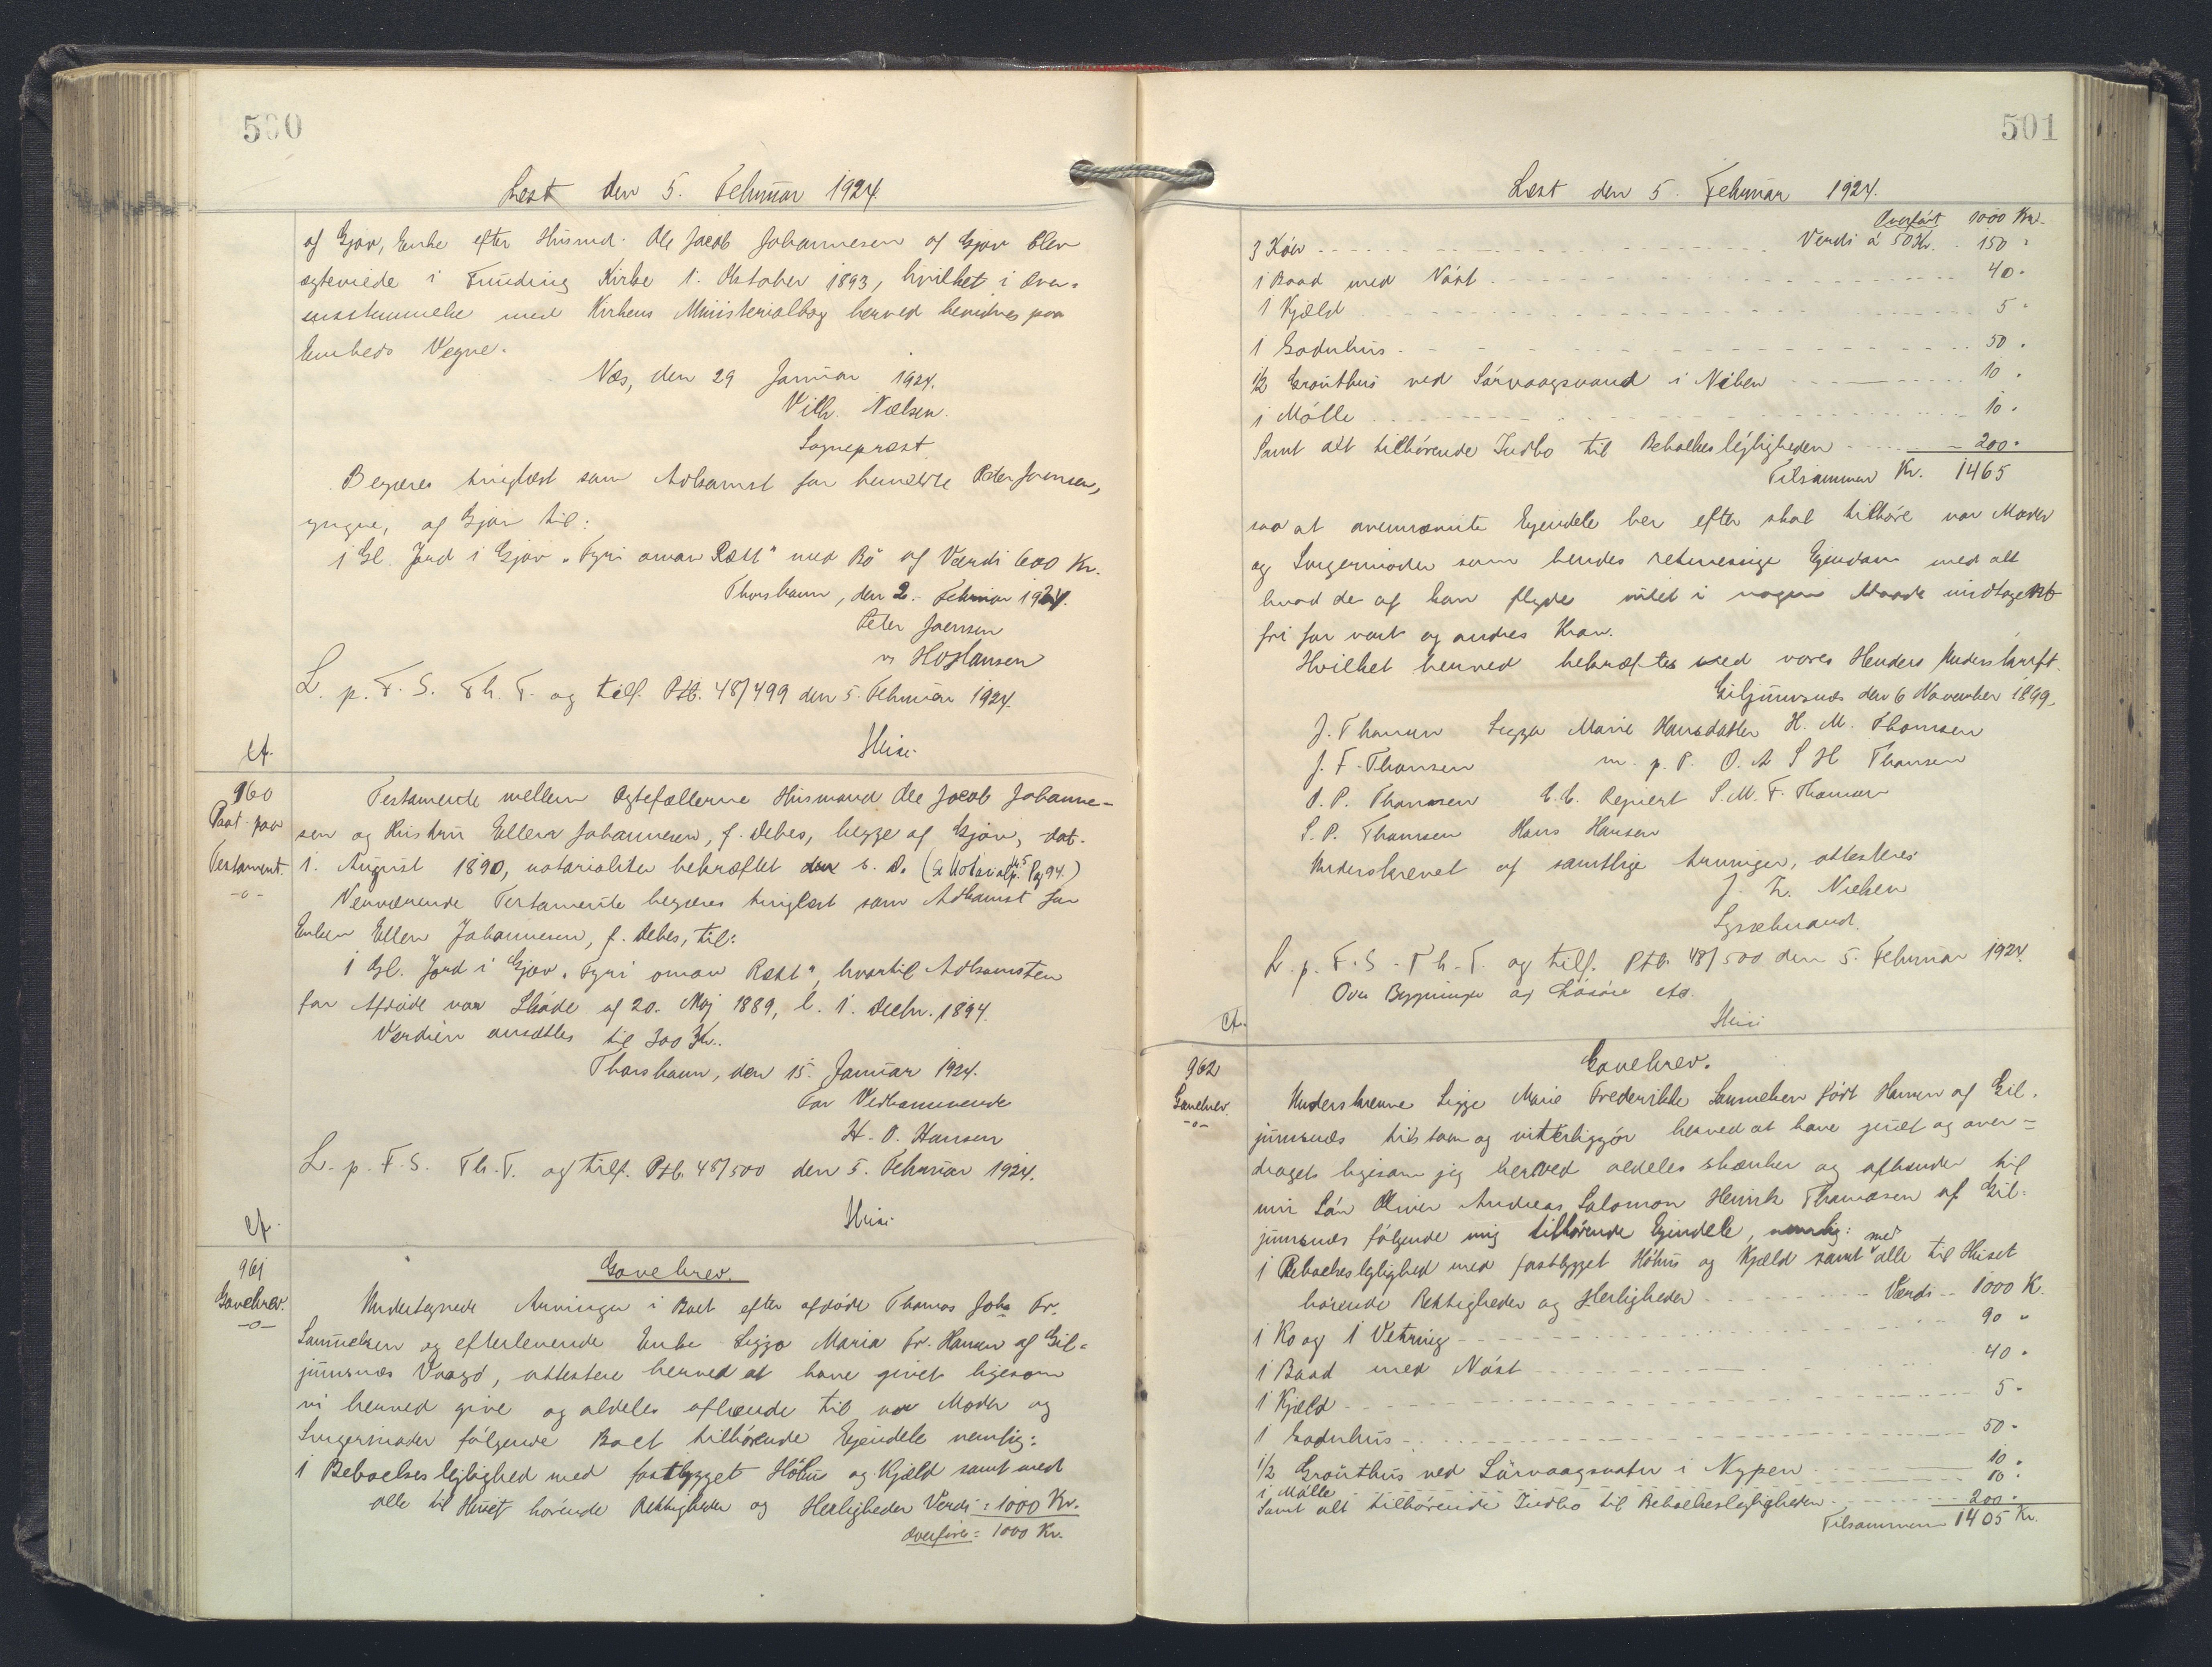 500
Læst den 5. Februar 1924.
af Gjov, Enke efter Husmd. Ole Jacob Johannesen af Gjov blev
ægteviede i Funding Kirke 1. Oktober 1893, hvilket i Over=
ensstemmelse med Kirkens Ministerialbog herved bevidnes paa
Embeds Vegne.
Næs, den 29 Januar 1924.
Vilh. Nælsen.
Sognepræst
Begæres tinglæst som Adkomst for Peter Joensen,
yngre, af Gjov til:
1 Gl. Jord i Gjov "Fyri oman Rætt" med Bö af Værdi 600 Kr.
Thorshavn, den 2. Februar 1924.
Peter Joensen
v. HOHansen
L. p. F. S. Th. T. og tilf. Ptb. 48/499 den 5. Februar 1924.
cf.
960
Paat. paa
Testament.
-o-
Testamente mellem Ægtefællerne Husmand Ole Jacob Johanne-
sen og Hustru Ellen Johannesen, f. Debes, begge af Gjov, dat.
1. August 1890, notarialiter bekræftet s. D. (Notarialp. Pag 94.)
Nerværende Testamente begæres tinglæst som Adkomst for
Enken Ellen Johannesen, f. Debes, til:
1 Gl. Jord i Gjov "Fyri oman Rætt", hvortil Adkomsten
for Afdöde var Sköde af 20. Maj 1889, l. 1. Decbr. 1894.
Værdien ansættes til 300 Kr..
Thorshavn, den 15. Januar 1924.
For Vedkommende
H. O. Hansen
L. p. F. S. Th. T. og tilf. Ptb. 48/500 den 5. Februar 1924.
cf.
961
Gavebrev.
-o-
Gavebrev.
Undertegnede Arvinger i Boet efter afdöde Thomas Johs Fr.
Samuelsen og efterlevende Enke Sigga Maria Fr. Hansen af Gil=
jumsnæs Vaagö, attestere herved at have givet ligesom
vi herved give og aldeles afhænde til vor Moder og
Svigermoder fölgende Boet tilhörende Ejendele nemlig:
1 Beboelseslejlighed med fastbygget Höhus og Kjæld samt med
alle til Huset hörende Rettigheder og Herligheder Verdi = 1000 Kr.
Overföres = 1000 Kr.
501
Læst den 5. Februar 1924.
Overfört 1000 Kr.
3 Köer Verdi á 50 Kr. 150 "
1 Baad med Nöst 40.
1 Kjæld 5.
1 Sodnhus 50.
1/2 Grouthus ved Sörvaagsvand i Niben 10.
1 Mölle 10.
Samt alt tilhörende Indbo til Beboelseslejligheden 200.
Tilsammen Kr. 1465
saa at ovennævnte Ejendele her efter skal tilhöre vor Moder
og Svigermoder som hendes retmessige Ejendom med alt
hvad der af kan flyde intet i nogen Maade undtaget
fri for vort og andres Krav.
Hvilket herved bekræftes med vores Henders Underskrift.
Giljumsnæs den 6 November 1899.
J. Thomsen Sigga Marie Hansdatter H. M. Thomsen
J. F. Thomsen m. p. P. O. A S H Thomsen
O. P. Thomsen E. C. Regnert S. M. F. Thomsen
S. P. Thomsen Hans Hansen
Underskrevet af samtlige Arvinger, attesteres
J. Nielsen
Sysselmand.
L. p. F. S. Th. T. og tilf. Ptb. 48/500 den 5. Februar 1924
Over Bygninger og Lösöre etc.
cf.
962
Gavebrev.
-o-
Gavebrev.
Underskrevne Sigge Marie Frederikke Samuelsen födt Hansen af Gil=
jumsnæs tilstaar og vitterliggör herved at have givet og over=
draget ligesom jeg herved aldeles skænker og afhænder til
min Sön Oliver Andreas Salomon Henrik Thomasen af Gil=
jumsnæs fölgende mig tilhörende Ejendele, nemlig:
1 Beboelseslejlighed med fastbygget Höhus og Kjæld samt med alle til Huset
hörende Rettigheder og Herligheder Værdi 1000 K.
1 Ko og 1 Vetring 90 "
1 Baad med Nöst 40.
1 Kjæld 5.
1 Sodnhus 50.
1/2 Grouthus ved Sörvaagsvatn i Nypen 10.
1 Mölle 10.
Samt alt tilhörende Indbo til Beboelseslejligheden 200.
Tilsammen 1405 Kr.